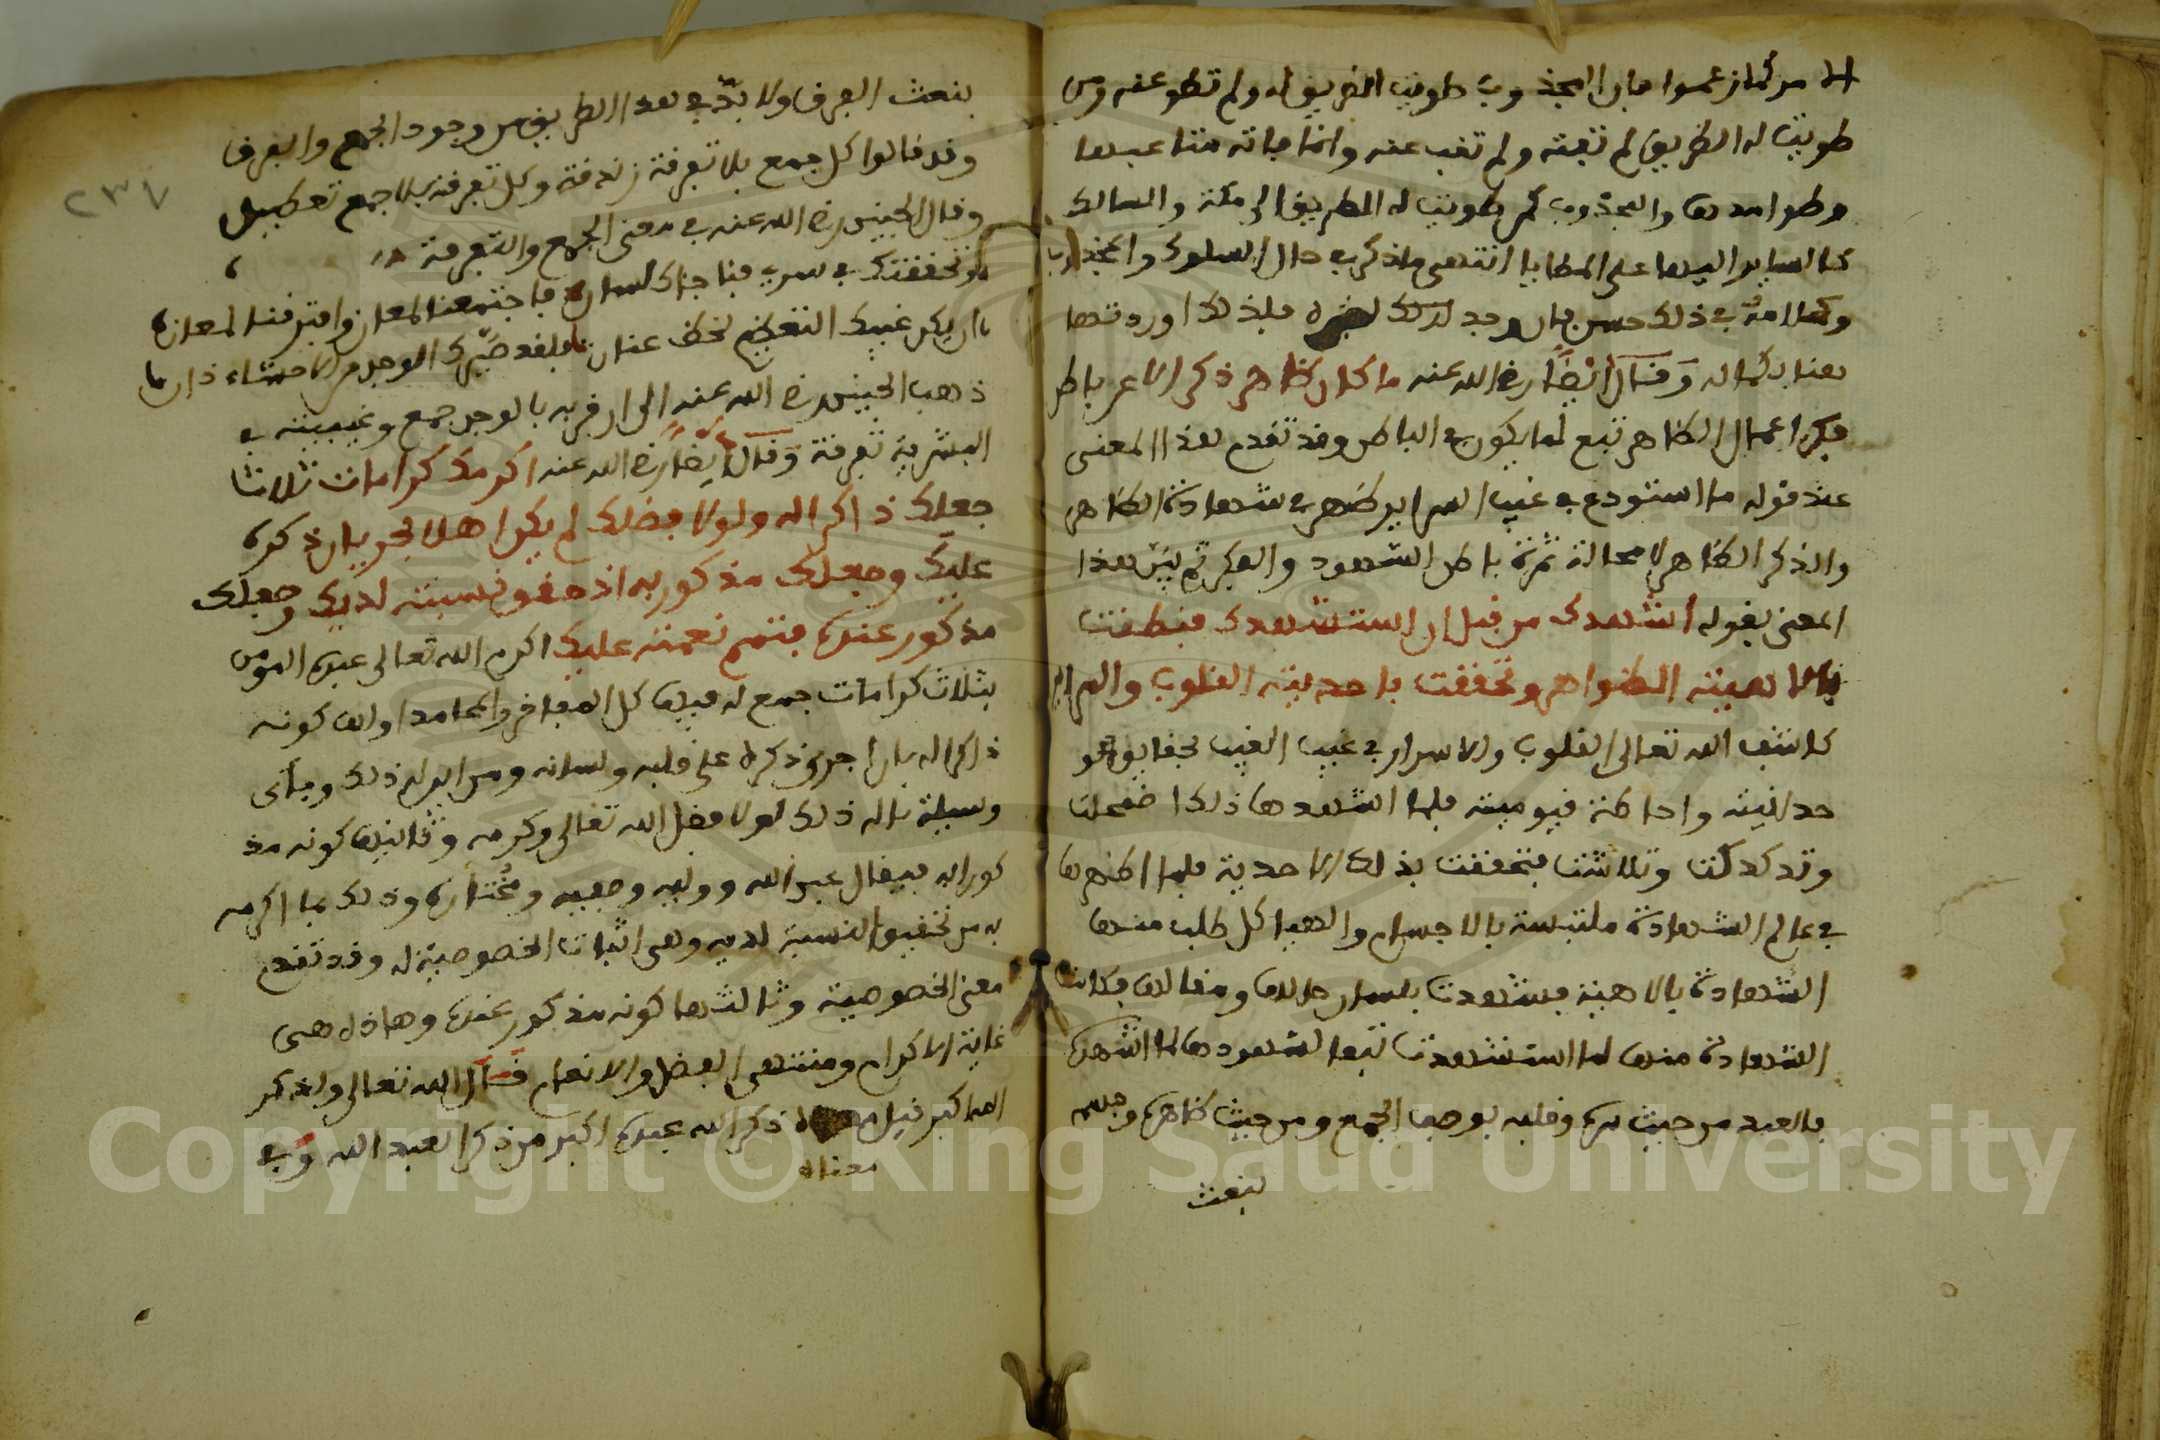 الامر كما زعموا فان المجذوب طويت الطريق له ولم تطو عنه ومن
طويت له الطريق لم تفته ولم تغب عنه وانما فاته متاعبها
وطول امدها والمجذوب كمن طويت له الطريق الى مكة والسالك
كالساير اليها على المطايا انتهى ما ذكره في حال السلوك والجذب
وكلامه في ذلك حسن لم نجد لغيره فلذلك اوردتها
هنا بكماله وقال ايضا رضي الله عنه ما كان ظاهر ذكر الا عن باطن
فكر اعمال الظاهر تبع لما يكون في الباطن وقد تقدم هذا المعنى
عند قوله ما استودع في غيب السراير ظهر في شهادة الظاهر
والذكر الظاهر لا محالة ثمرة باطن الشهود والفكر ثم بين هذا
المعنى بقوله اشهدك من قبل ان استشهدك فنطقت
بالاهيته الظواهر وتحققت باحديته القلوب والسراير
كاشف الله تعالى القلوب والاسرار في غيب الغيب بحقايق و
حدانيته واحاطة قيوميته فلما اشهدها ذلك اضمحلت
وتدكدكت وتلاشت فتحققت بذلك الاحدية فلما اظهرها
في عالم الشهادة ملتبسة بالاجسام والهياكل طلب منها
الشهادة بالاهيته فشهدت بلسان حالها ومقالها فكانت
الشهادة منها لما استشهدت تبعا لشهودها لما اشهدت
فالعبد من حيث سره وقلبه بوصف الجمع ومن حيث ظاهره وجسمه
بنعت
٢٣٧
بنعت الفرق ولا بد في هذا الطريق من وجود الجمع والفرق
وقد قالوا كل جمع بلا تفرقة زندقة وكل تفرقة بلا جمع تعطيل
وقال الجنيد رضي الله عنه في معنى الجمع والتفرقة
قد تحققتك في سري فناجاك لساني فاجتمعنا لمعان وافترقنا لمعان
ان يكن غيبك التعظيم لحظ عيان فلقد صيرك الوجد من الاحشاء دان
ذهب الجنيد رضي الله عنه الى ان قربه بالوجد جمع وغيبته في
البشرية تفرقة وقال ايضا رضي الله عنه اكرمك كرامات ثلاثا
جعلك ذاكرا له ولولا فضله لم يكن اهلا لجريان ذكره
عليك وجعلك مذكورا به اذ حقق نسبته لديك وجعلك
مذكورا عنده فتمم نعمته عليك اكرم الله تعالى عبده المومن
بثلاث كرامات جمع له فيها كل المفاخر والمحامد اولها كونه
ذاكرا له بان اجرى ذكره على قلبه ولسانه ومن اين له ذلك وبأي
وسيلة ناله ذلك لولا فضل الله تعالى وكرمه وثانيها كونه مذ
كورا به فيقال عبد الله ووليه وصفيه ومختاره وذلك بما اكرمه
به من تحقيق النسبة لديه وهي اثبات الخصوصية له وقد تقدم
معنى الخصوصية وثالثها كونه مذكورا عنده وهاذه هي
غاية الاكرام ومنتهى الفضل والانعام قال الله تعالى ولذكر
الله اكبر قيل معناه ذكر الله عبده اكبر من ذكر العبد الله وفي
معناه
Copyright © King Saud University